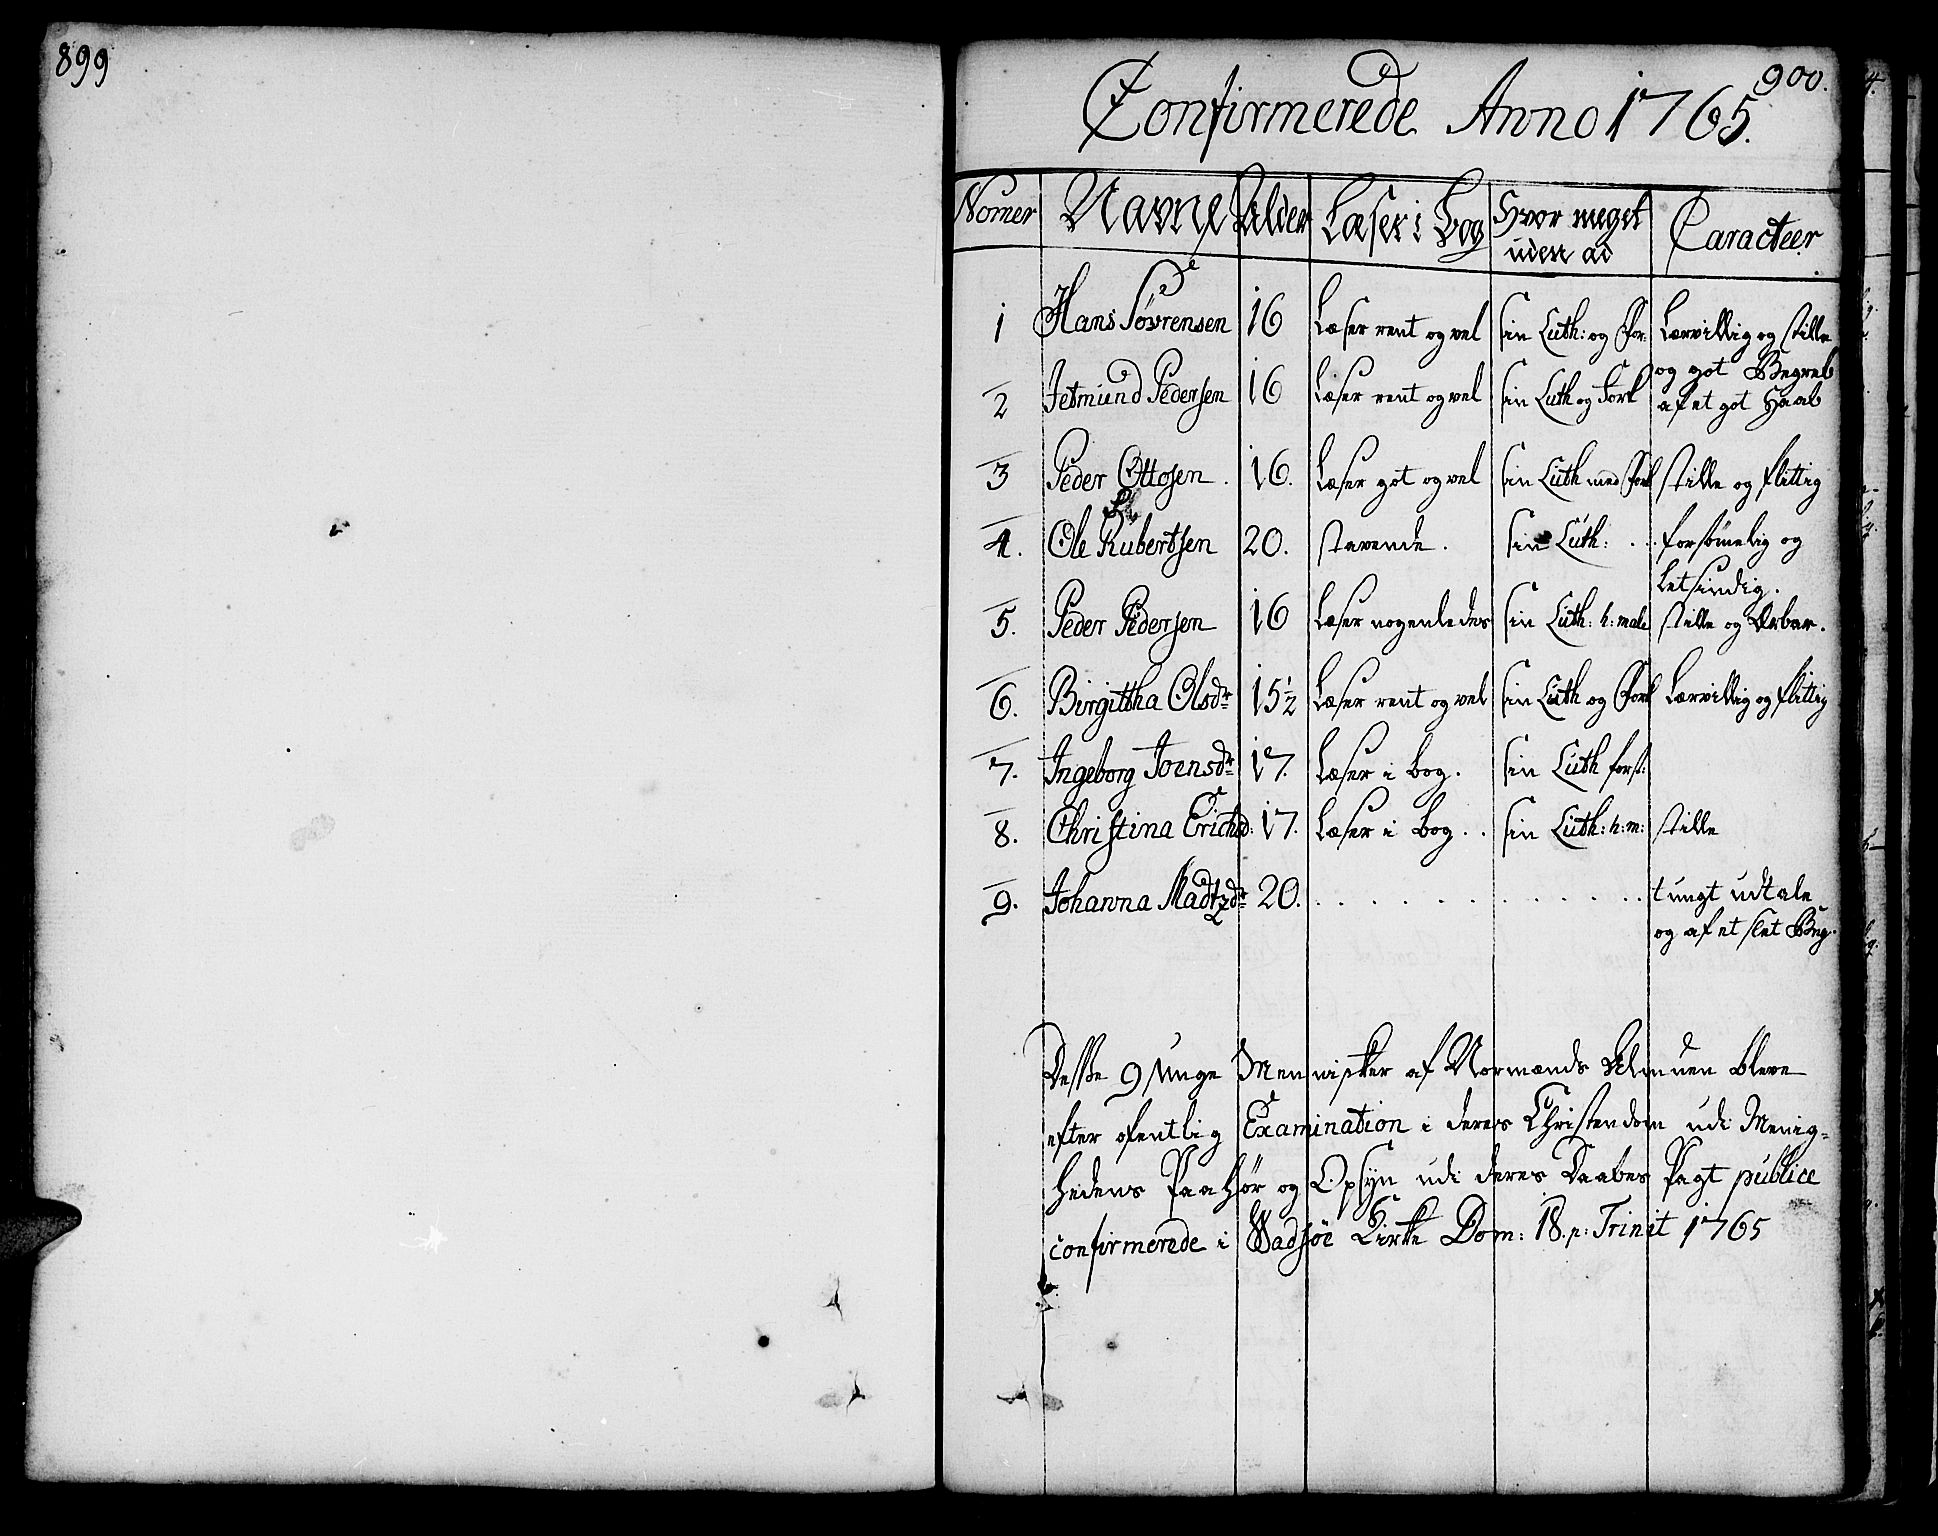 899
900.
Confirmerede Anno 1765.
Nomer Navne Alder Læser i Bog Hvor meget uden ad Caracteer
1 Hans Sövrensen 16 Læser rent og vel sin Luth: og For: Lærvillig og stille og got Begreb
2 Jetmund Pedersen 16 Læser rent og vel sin Luth og Forkl af et got Haab
3 Peder Ottosen. 16. Læser got og vel sin Luth med Forkl stille og flittig
4. Ole Rubertsen 20. stavende. sin Luth: . . forsömelig og letsindig.
5. Peder Pedersen 16 Læser nogenledes sin Luth: h: male stille og Ærbar.
6. Birgittha Olsdr 15½ Læser rent og vel sin Luth og Forkl Lærvillig og flittig
7. Ingeborg Joensdr 17. Læser i bog. sin Luth forst:
8. Christina Erichsd: 17. Læser i bog. . sin Luth: h: m: stille
9. Johanna Madtzdr 20. . . . . . . . . . . . . tungt udtale
og af et slet Beg.
Desse 9 Unge Mennisker af Normands Almuen bleve
efter ofentlig Examination i deres Christendom udi Menig=
hedens Paahör og Opsyn udi deres Daabes Pagt publice
confirmerede i Wadsöe Kirke Dom: 18. p: Trinit 1765